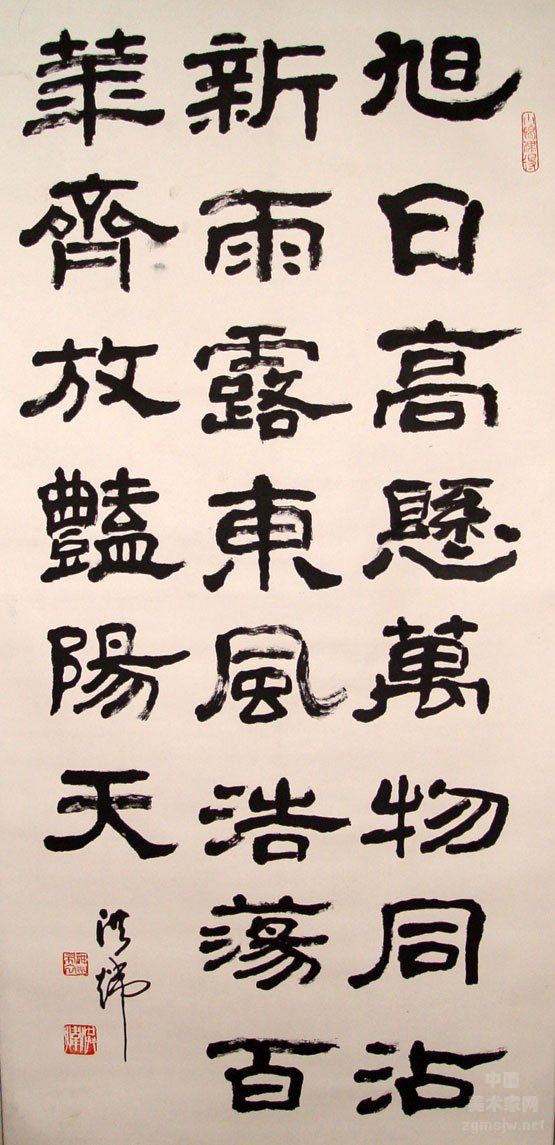 旭日高懸萬物同沾
新雨露東風浩蕩百
華齊放豔陽天
中国
美术家网
zgmsjw.net